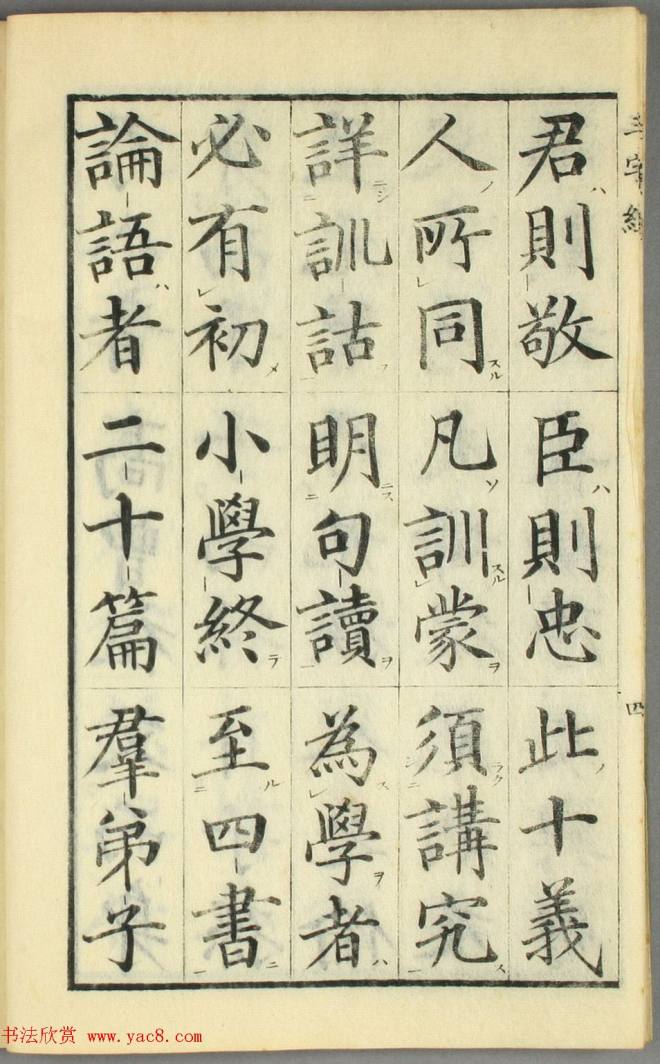 三字經
四
君則敬臣則忠此十義
人所同凡訓蒙須講究
詳訓詁明句讀為學者
必有初小學終至四書
論語者二十篇羣弟子
书法欣赏 www.yac8.com